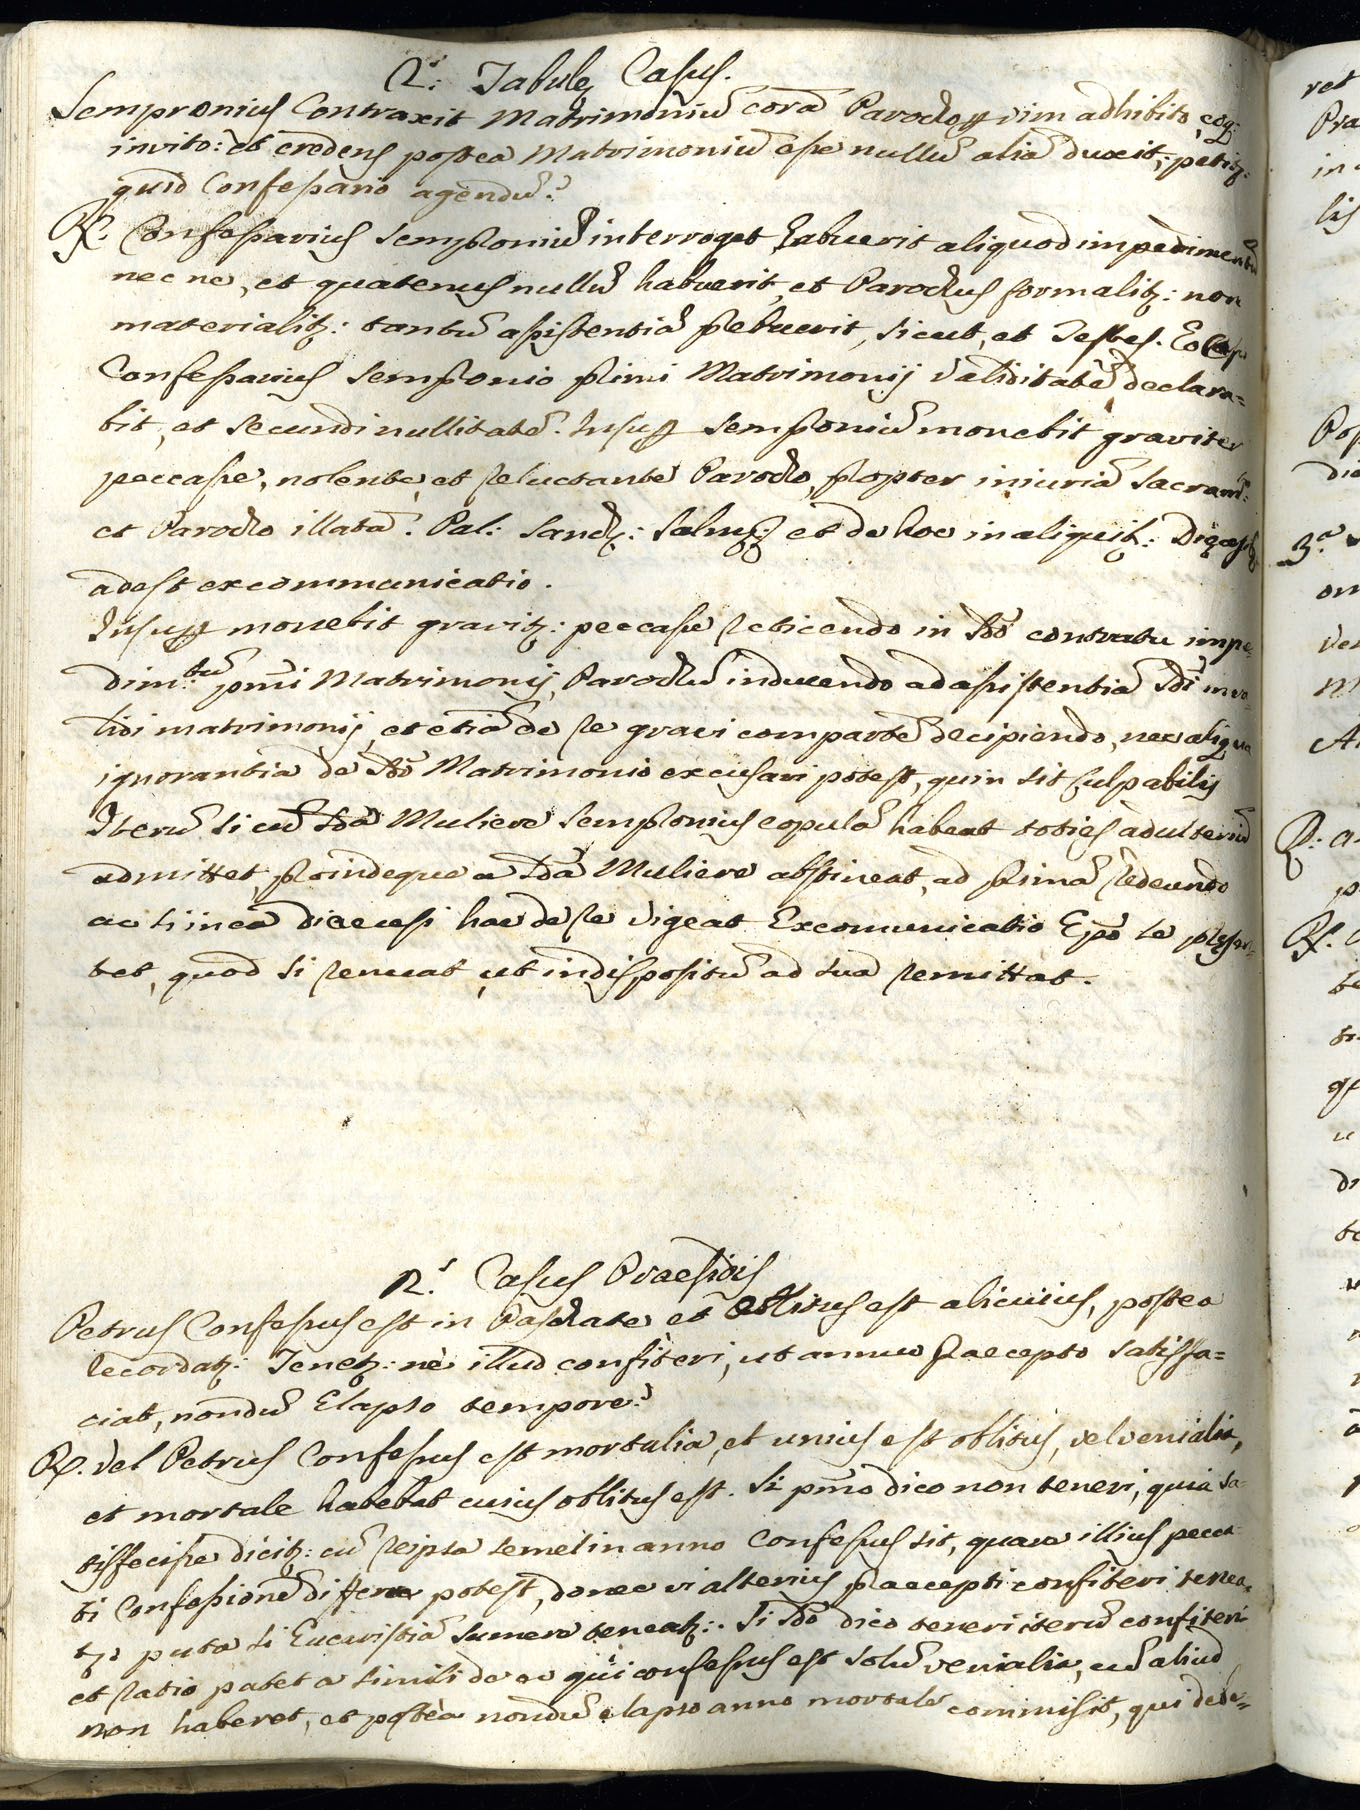 2.s: Tabulę Casus.
Sempronius Contraxit Matrimoniũ corã Parocho ꝑ vim adhibito, eoq:
invito: et credens postea Matrimoniũ esse nullũ aliã duxit; petitꝛ:
quid Confessario agendũ?
R. Confessarius Semproniũ interroget habuerit aliquod impedimentũ
nec ne, et quatenus nullũ habuerit, et Parochus formalitꝛ: non
materialitꝛ: tantũ assistentiã prebuerit, sicut, et Testes. Eo Casu
Confessarius Sempronio primi Matrimonij validitatẽ declara=
bit, et secundi nullitatẽ. Insuꝑ Semproniũ monebit graviter
peccasse, nolente, et reluctante Parocho, propter iniuriã Sacramti:
et Parocho illatã. Pal: Sanch: Salm: et de hoc in aliquib:
adest excommunicatio.
Insuꝑ monebit gravitꝛ: peccasse reticendo in 2dõ contractu impe=
dim:tũ pm̃i Matrimonij, Parochũ inducendo ad assistentiã 2di inva=
lidi matrimonij, et etiã de re gravi compartẽ decipiendo, nec aliqua
ignorantia de 2dõ Matrimonio excusari potest, quin sit culpabilis
Iterũ si cũ 2dã Muliere Sempronius copulã habeat toties adulteriũ
admittet, proindeque a 2dã Muliere abstineat, ad primã redeundo
ac si in ea diœcesi hac de re vigeat Excomunicatio Epõ se presen=
tet, quod si renuat ut indispositũ ad sua remittat.
2.s Casus Praesidis
Petrus Confessus est in Paschate et oblitus est alicuius, postea
recordatꝛ: Tenetꝛ: ne illud confiteri, ut annuo praecepto satisfa=
ciat, nondũ elapso tempore?
R. Vel Petrus Confessus est mortalia, et unius est oblitus, vel venialia,
et mortale habebat cuius oblitus est. Si pm̃o dico non teneri, quia sa=
tisfecisse dicitꝛ: cũ reipsa semel in anno Confessus sit, quare illius pecca=
ti Confessionẽ differre potest, donec vi alterius praecepti confiteri tenea=
tꝛ, puta si Eucaristiã sumere teneatꝛ:. Si 2dõ dico teneri iterũ confiteri
et ratio patet a simili de eo qui confessus est solũ venialia, cũ aliud
non haberet, et postea nondũ elapso anno mortale commisit, qui debe=